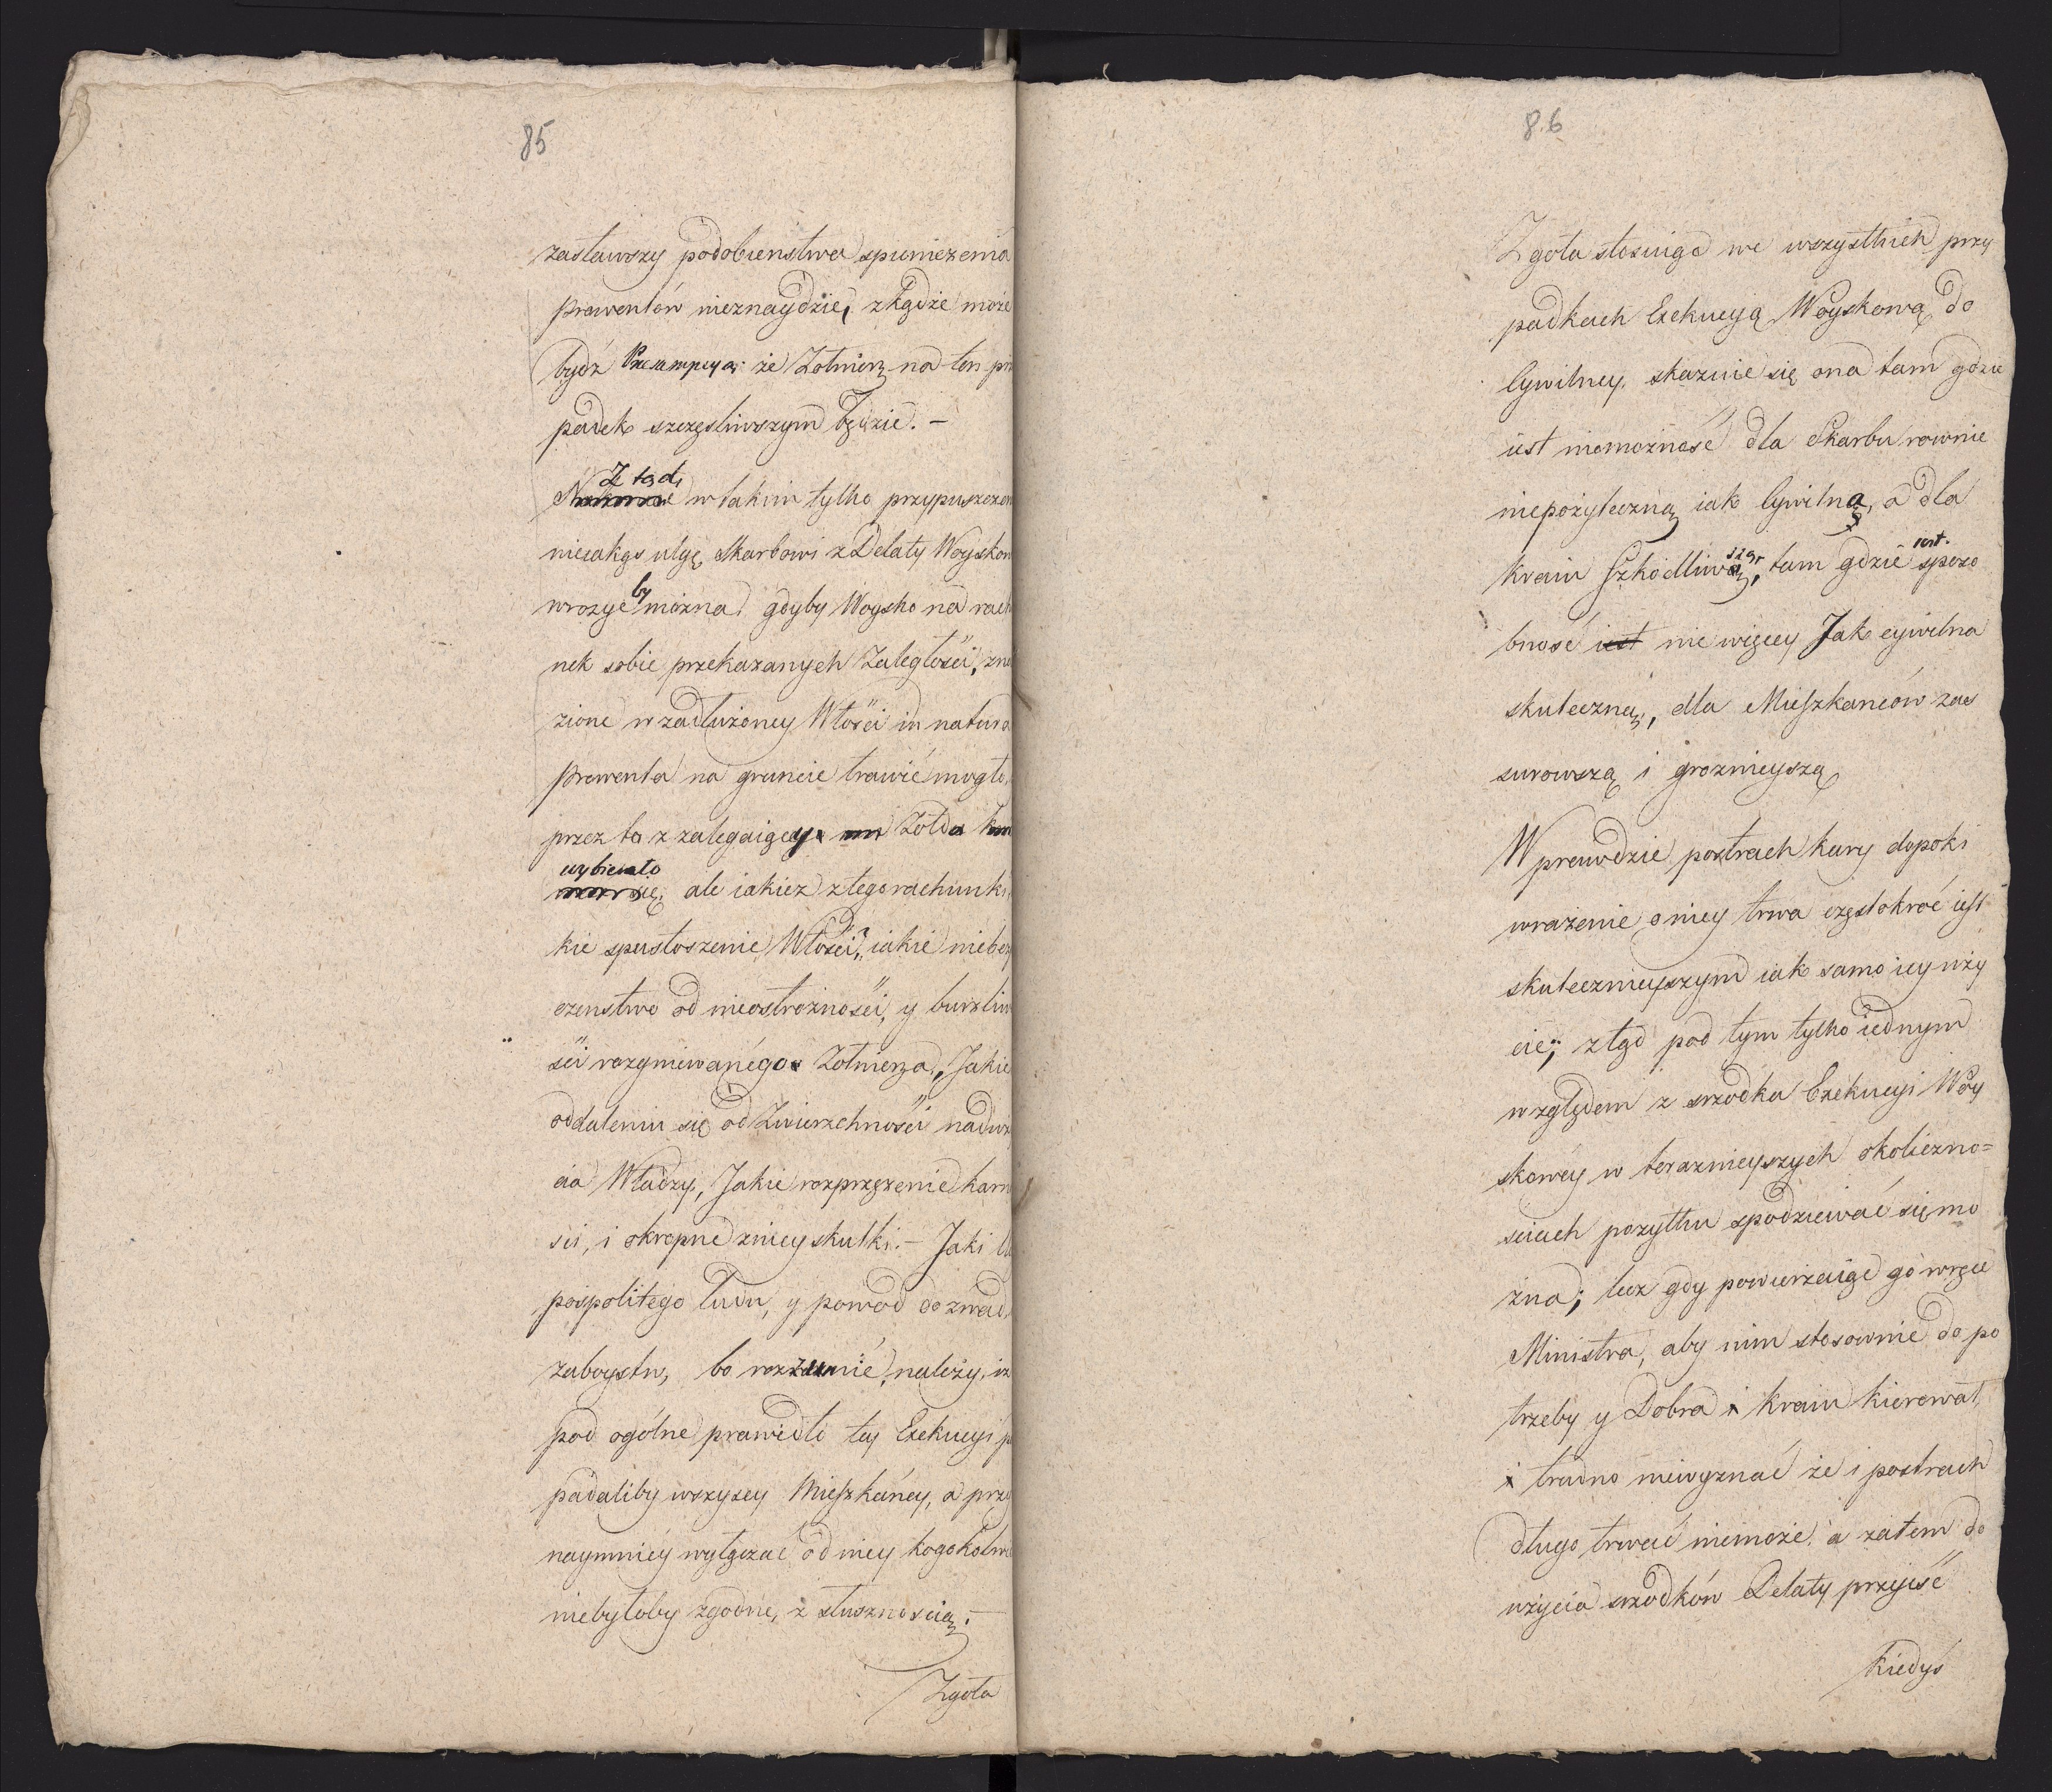 85
zastawszy podobienstwa spienieżenia
prowentów nieznaydzie, zkądże może
bydź Presumpcya: że Zołnierz na ten prz
padek szczęsliwszym będzie. –
Z tąd
w takim tylko przypuszczen
nieiakąś ulgę Skarbowi z Delaty Woyskow
wrozyć by można gdyby Woysko na rach
nek sobie przekazanych Zaległości, zna
zione w zadłużoney Włości in natura
prowenta na gruncie trawić mogło,
przez to z zalegaiącey Zołdu
wybierało
się; ale iakiez z tego rachunki,
kie spustoszenie Włości, iakie niebez
czenstwo od nieostrożności, y burzliw
ści rozgniewanego Zołnierza, Jakie
oddaleniu się od Zwierzchności naduż
cia Władzy, Jakie rozprzężenie karn
ści, i okropne z niey skutki. – Jaki
pospolitego Ludu, y powod do zwad,
zaboystw, bo rozumié należy, iż
pod ogólne prawidło tey Exekucyi p
padaliby wszyscy Mieszkáncy, a przy
naymniéy wyłączać od niey kogokolwi
niebyłoby zgodne, z słusznoscią. –
Zgoła
86
Zgoła stosuiąc we wszystkich przy
padkach Exekucyą Woyskową do
Cywilney, skazuie się ona tam gdzie
iest niemożność dla Skarbu rownie
niepożyteczną iak Cywilną, a dla
kraiu Szkodliwszą, tam gdzie iest sposo
bność iest nie więcey Jak cywilna
skuteczną, dla Mieszkancow zas
surowszą i grozmieyszą
Wprawdzie postrach kary dopoki
wrażenie o niey trwa częstokroć iest
skutecznieyszym iak samo iey uży
cie; ztąd pod tym tylko iednym
względem z srzodka Exekucyi Woy
skowéy w terazmieyszych okoliczno=
sciach pożytku spodziewać się mo
żna; lecz gdy powierzaiąc go w ręce
Ministra, aby nim stosownie do po
trzeby y Dobra kraiu kierował,
trudno niewyznać że i postrach
długo trwać niemoże, a zatem do
użycia srzodków Delaty przyiść
Kiedyś